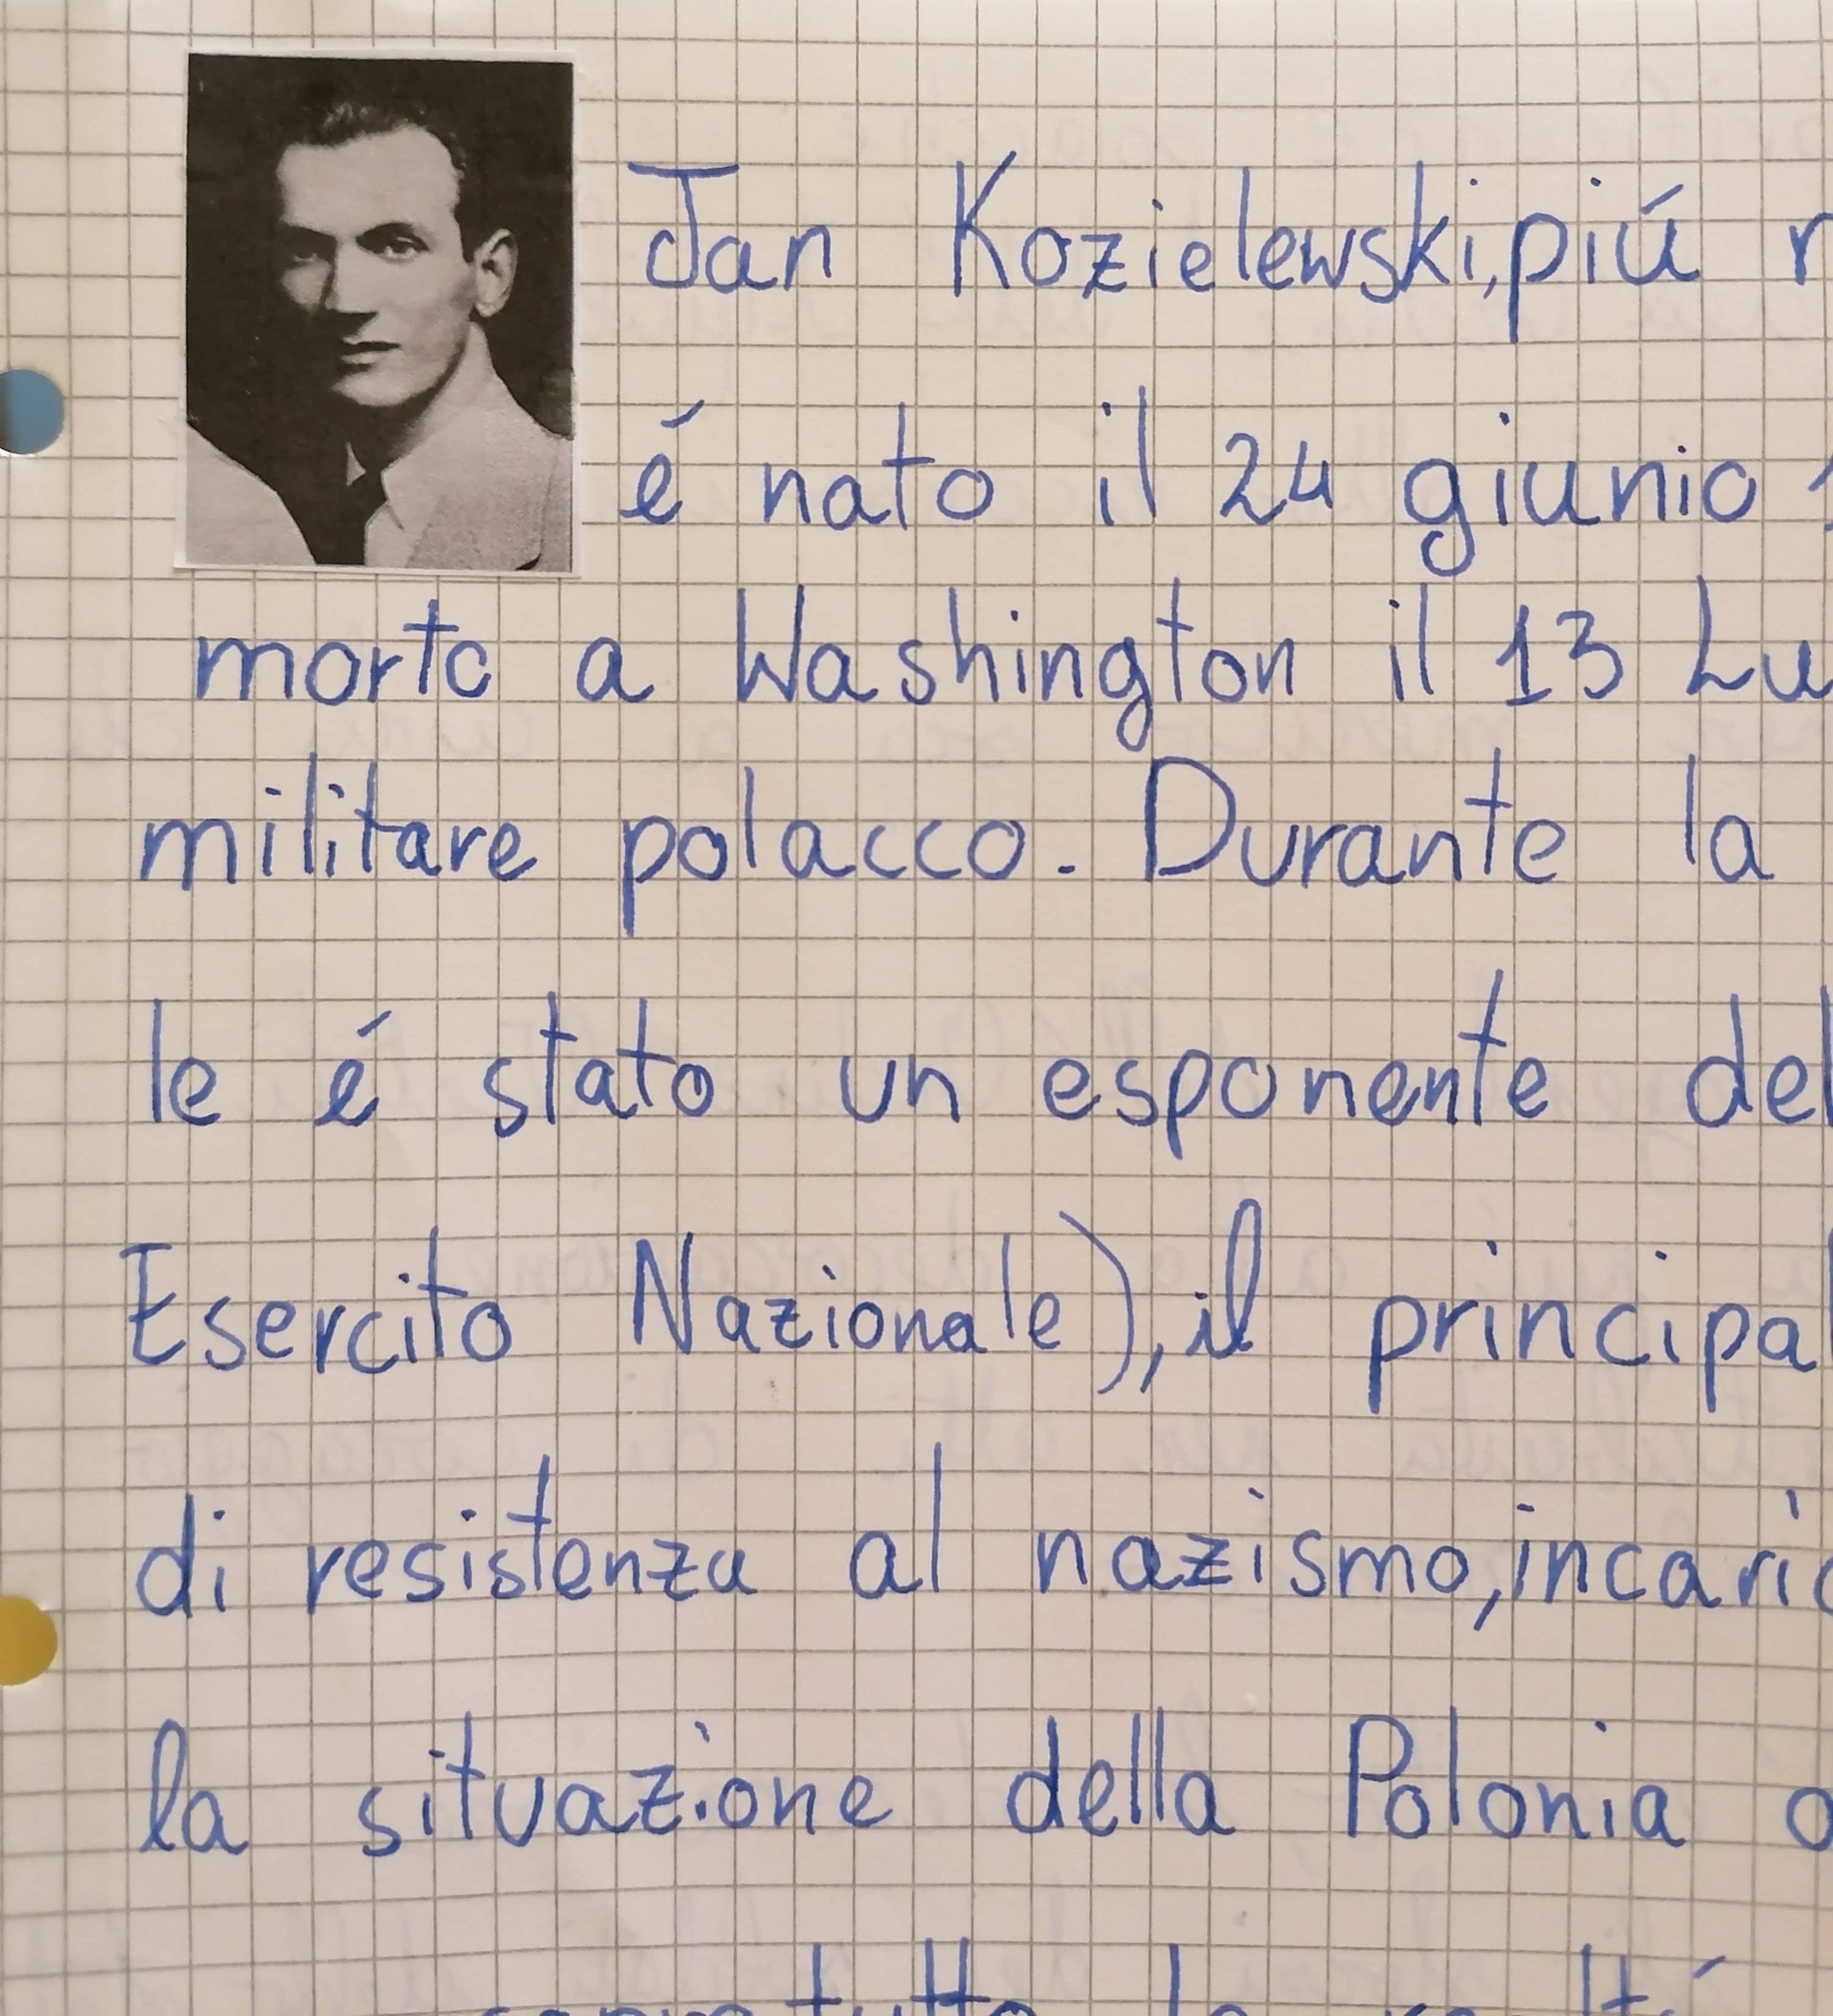 Jan Kozielewski, piú
é nato il 24 giunio
morto a Washington il 13 Lu
militare polacco. Durante la
le é stato un esponente del
Esercito Nazionale), il principal
di resistenza al nazismo, incaric
la situazione della Polonia o